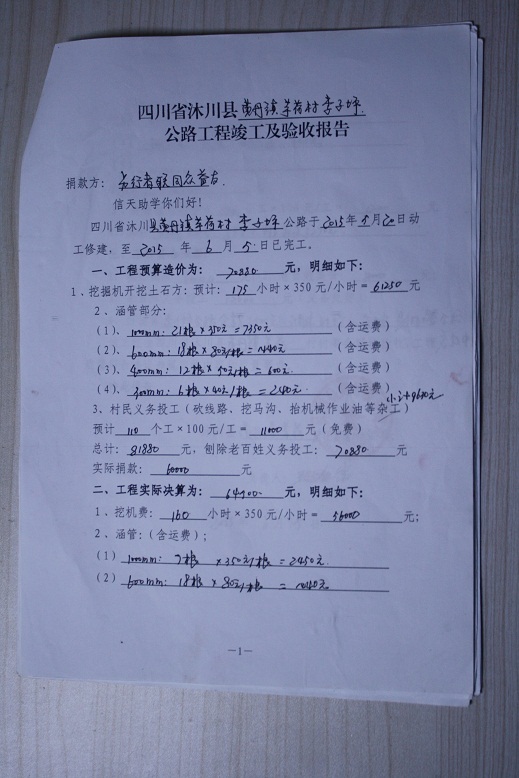 四川省沐川县黄丹镇羊荷村李子坪
公路工程竣工及验收报告
捐款方：益行者联同众益友
信天助学你们好！
四川省沐川县黄丹镇羊荷村李子坪公路于2015年5月20日动
工修建，至2015年6月5日已完工。
一、工程预算造价为：70880元，明细如下：
1、挖掘机开挖土石方：预计：175小时×350元/小时=61250元
2、涵管部分：
（1）、1000mm：21根×350元=7350元（含运费）
（2）、600mm：18根×80元/根=1440元（含运费）
（3）、400mm：12根×50元/根=600元（含运费）
（4）、300mm：6根×40元/根=240元（含运费）
小计9630元
3、村民义务投工（砍线路、挖马沟、抬机械作业油等杂工）
预计110个工×100元/工=11000元（免费）
总计：81880元，刨除老百姓义务投工：70880元
实际捐款：60000元
二、工程实际决算为：64900元，明细如下：
1、挖机费：160小时×350元/小时=56000元；
2、涵管：（含运费）；
（1）1000mm：7根×350元/根=2450元
（2）600mm：18根×80元/根=1440元
—1—